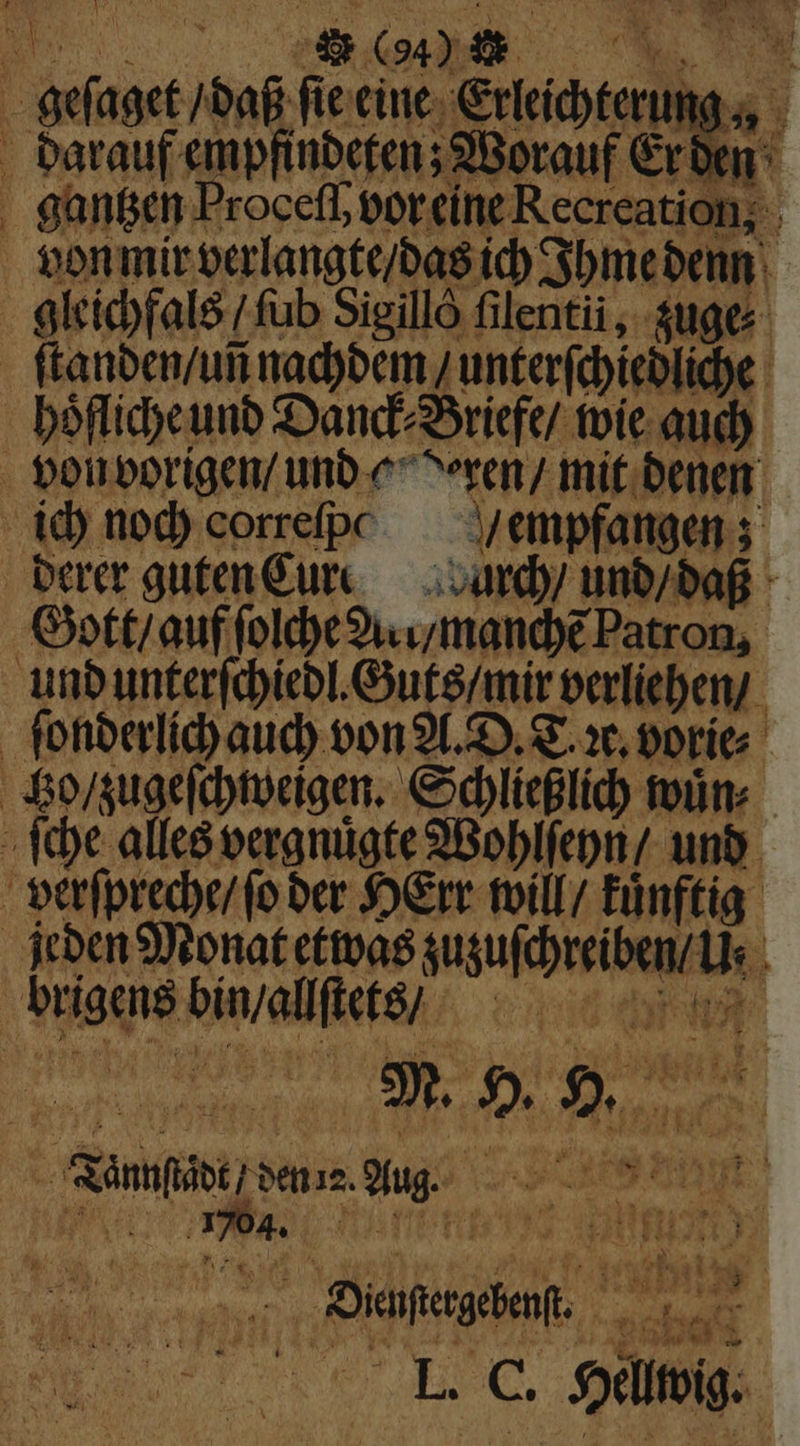 (94)
geſaget / daß ſie eine Erleichterung
darauf empfindeten; Worauf Er den
gantzen Proceſſ, vor eine Recreation,
von mir verlangte/das ich Ihme denn
gleichfals / ſub Sigillô ſilentii, zuge⸗
ſtanden/uñ nachdem / unterſchiedliche
hoͤfliche und Danck⸗Briefe/ wie auch
von vorigen/ und mit denen
ich noch correſp /empfangen;
derer guten Cur und/daß
Gott/auf ſolche manchẽ Patron,
und unterſchiedl. Guts/mir verliehen/
ſonderlich auch von A. D. T. ꝛc. vorie⸗
tzo/zugeſchweigen. Schließlich wuͤn⸗
ſche alles vergnuͤgte Wohlſeyn/ und
verſpreche/ ſo der HErr will/ kuͤnftig
jeden Monat etwas zuzuſchreiben/U⸗
brigens bin/allſtets/
M. H. H.
Taͤnnſtaͤdt / den 12. Aug.
1704.
Dienſtergebenſt.
L. C. Hellwig.